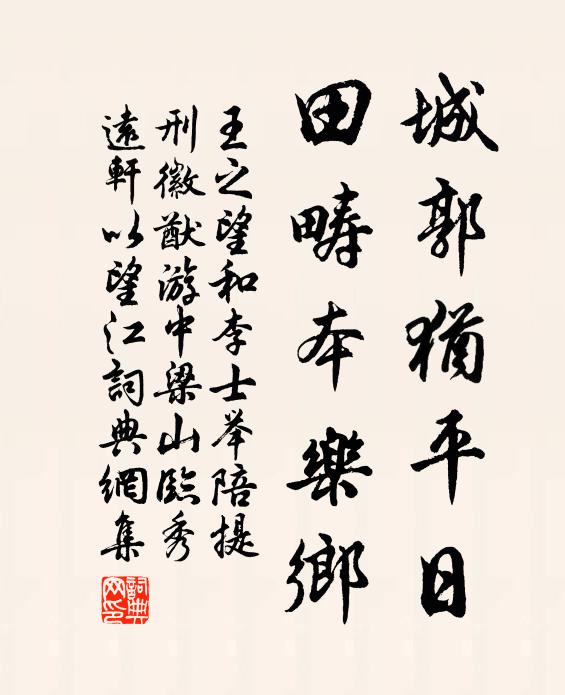 城郭猶平日
田疇本樂鄉
王之望和李士举陪提
刑徽猷游中梁山臨秀
遠軒以望江詞典網集
詞典网印